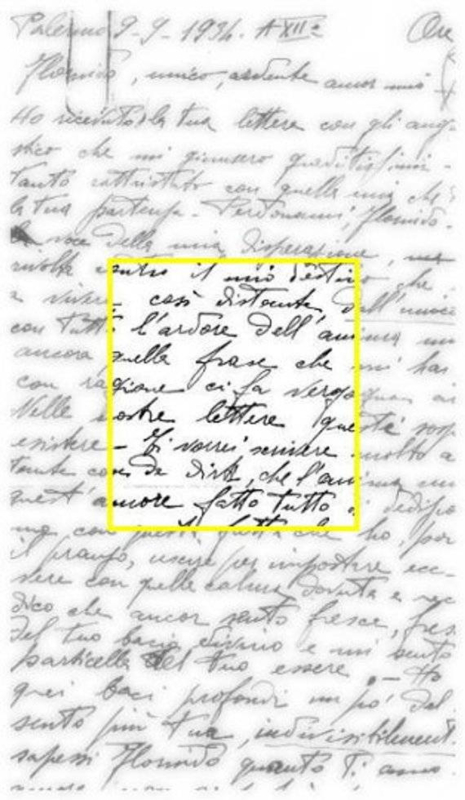 Palermo 9-9-1934. A XII° Ore
Flomido, unico, ardente amor mio -
Ho ricevuto la tua lettera con gli
che mi giunsero
tanto rattristato con quella mia che
la tua partenza. Perdonami, Flomido.
voce della mia disperazione,
rivolta contro il mio destino che
a vivere così distante, dall'unico
con tutto l'ardore dell'anima mia
ancora quella frase che mi hai
con ragione ci fa
Nelle nostre lettere questa
esistere - Ti vorrei scrivere molto a
tante cose da dirti, che l'anima
quest'amore fatto tutto di
ma con questa che ho, poi
il pranzo, uscire per impostare ecc-
vere con quella calma dovuta e
dico che ancor sento fresca, fres
del tuo bacio divino e mi sento
particella del tuo essere - Ho
quei baci profondi un po' del
sento più tua, indivisibilment.
sapessi Flomido quanto ti amo.